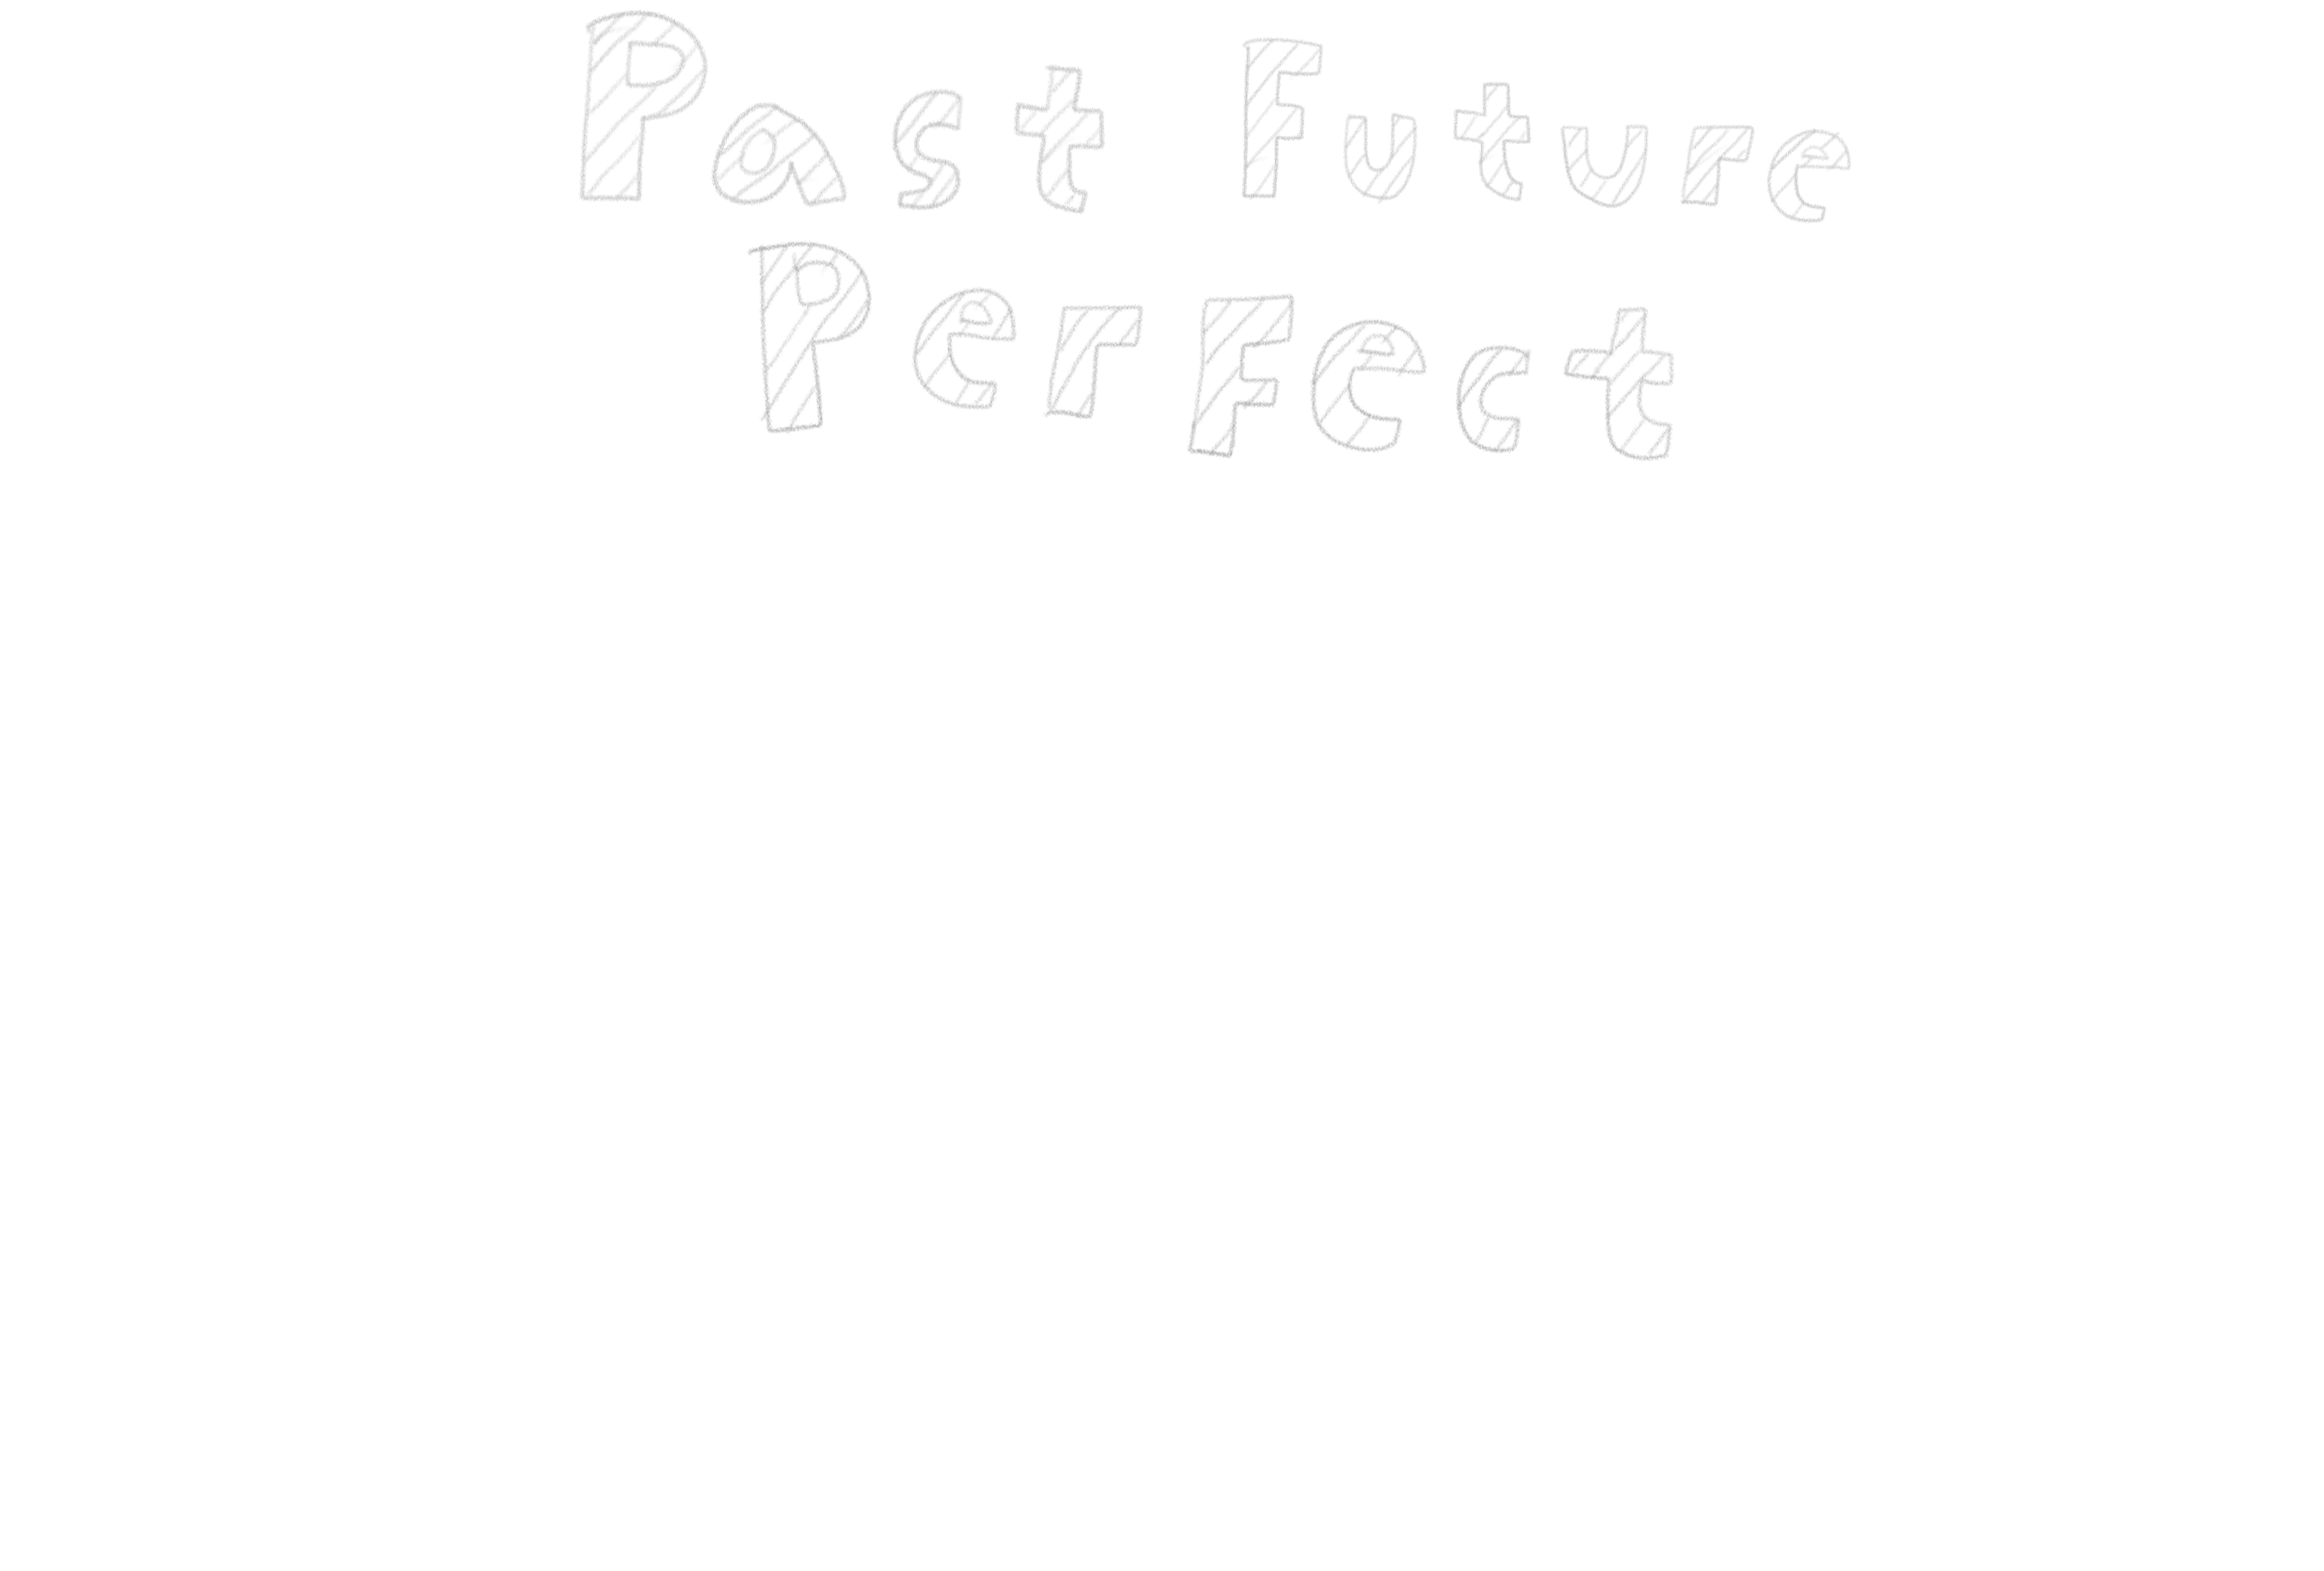 Past Future
Perfect